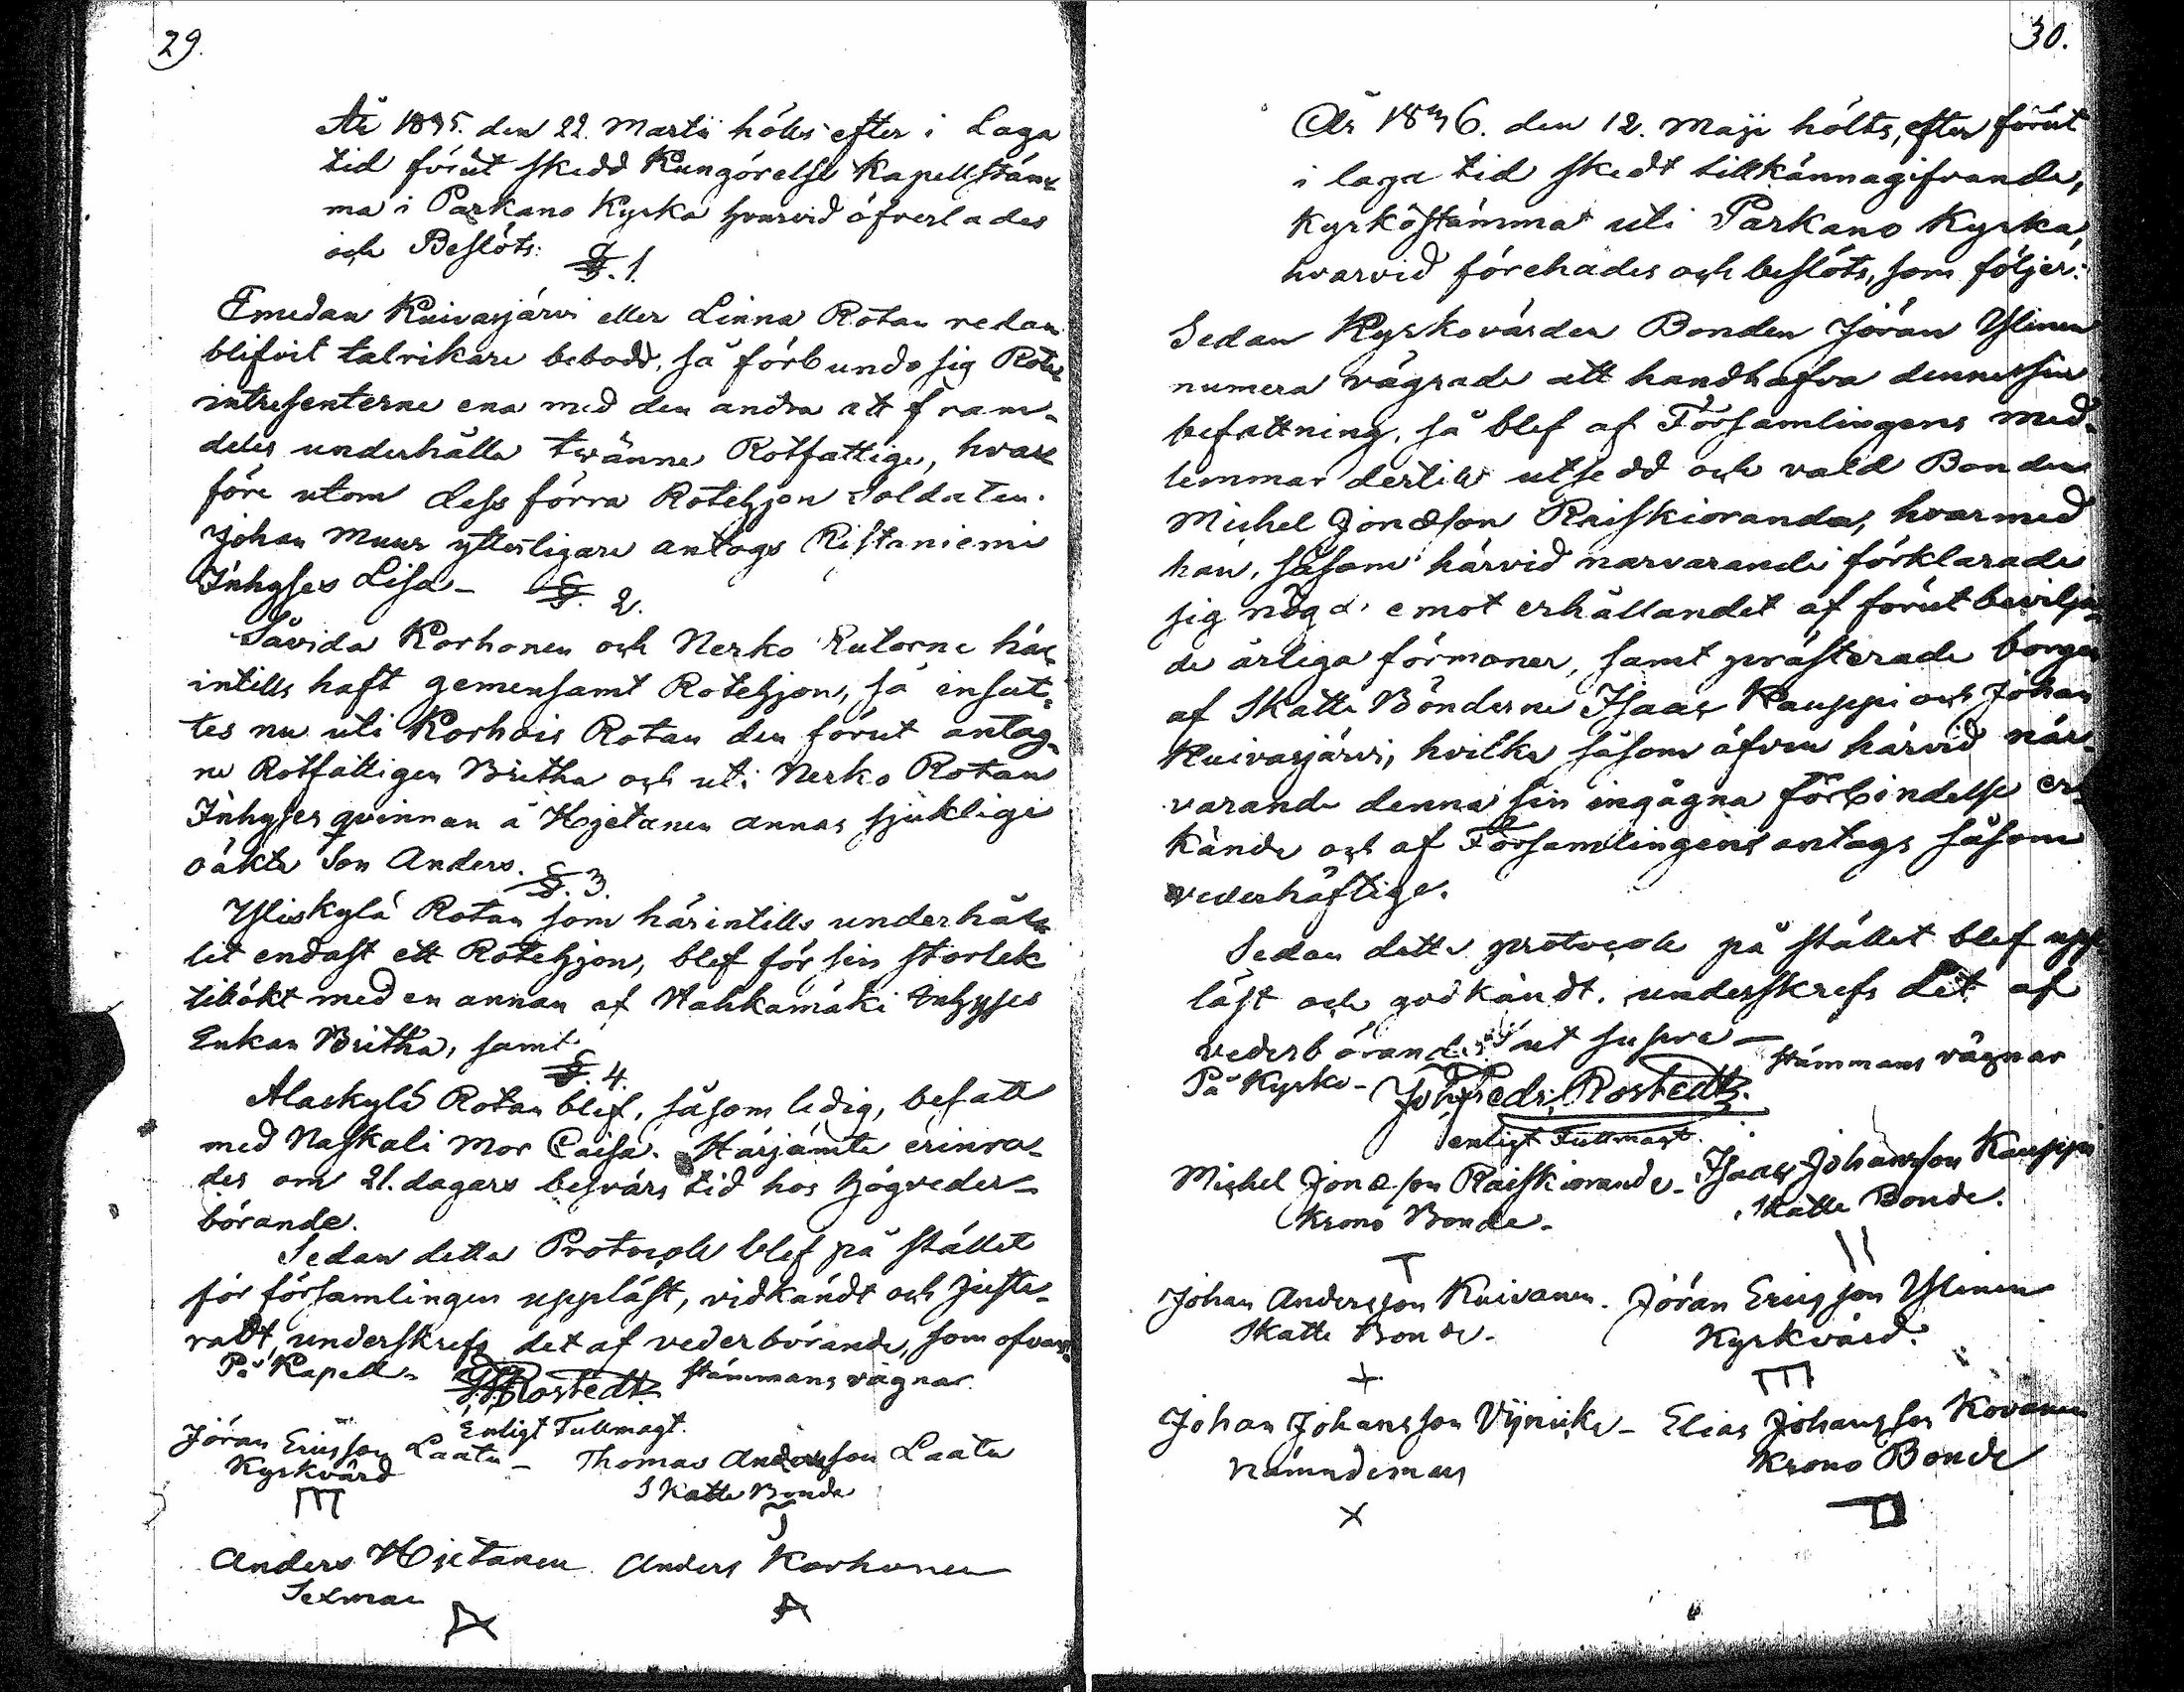 29.
År 1835. den 22. Martii höllts efter i Laga
tid förut skedd Kungörelse Kapellstäm-
ma i Parkano Kyrka hvarvid öfverlades
och Beslöts:
§. 1.
Emedan Kuivasjärvi eller Linna Rotan redan
blifvit talrikare bebodd, så förbundo sig Rote
intressenterne ena med den andra att fram-
deles underhålla tvänne Rotfattige, hvar-
före utom dess förra Rotehjon Soldaten
Johan Muur ytterligare antogs Ristaniemi
Inhyses Lisa -
§. 2.
Såvida Korhonen och Nerko Rutorne här-
intills haft gemensamt Rotehjon, så insat-
tes nu uti Korhois Rotan den förut antag-
ne Rotfattigen Britha och uti Nerko Rotan
Inhyses qvinnan å Hietanen annas sjuklige
oäkta Son Anders.
§. 3.
Yliskylä Rotan som härintills underhål-
lit endast ett Rotehjon, blef för sin storlek
tillökt med en annan af Hahkamäki Inhyses
Enkan Britha, samt
§. 4.
Alaskylä Rotan blef, såsom ledig, besatt
med Naskali Mor Caisa. Härjämte erinra-
des om 21. dagars besvärs tid hos högveder-
börande.
Sedan detta Protocoll blef på stället
för församlingen uppläst, vidkändt och juste-
radt, underskrefs det af vederbörande, som ofvan.
På Kapell- stämmans vägnar
Rostedt
Enligt Fullmagt.
Jöran Ericsson Laatu - Thomas Andersson Laatu
Kyrkvärd Skatte Bonde
Anders Hietanen Anders Korhonen
Sexman
30.
År 1836. den 12. Maji hölts, efter förut
i laga tid skedt tillkännagifvande,
Kyrkostämma uti Parkano Kyrka,
hvarvid förehades och beslöts, som följer:
Sedan Kyrkovärden Bonden Jöran Ylinen
numera vägrade att handhafva denne sin
befattning, så blef af Församlingens med-
lemmar dertill utsedd och vald Bonden
Michel Jonæson Raiskioranda, hvarmed
han, såsom härvid narvarande förklarade
sig nögd emot erhållandet af förut bevilja-
de årliga förmoner, samt presterade borgen
af Skatte Bönderne Isaac Kauppi och Johan
Kuivasjärvi, hvilka såsom äfven härvid när-
varande denna sin ingågna förbindelse er-
kände och af Församlingens antogs såsom
vederhäftige.
Sedan detta protocoll på stället blef upp-
läst och godkändt, underskrefs det af
vederbörande ut supra -
På Kyrko- stämmans vägnar
Joh Fredr. Rostedt.
enligt Fullmagt.
Michel Jonæson Raiskioranda - Isaac Johansson Kauppi
Krono Bonde - Skatte Bonde.
Johan Andersson Kuivanen. Jöran Ericsson Ylinen
Skatte Bonde - Kyrkvärd.
Johan Johansson Vijnicka - Elias Johansson Kovanen
Nämndeman Krono Bonde